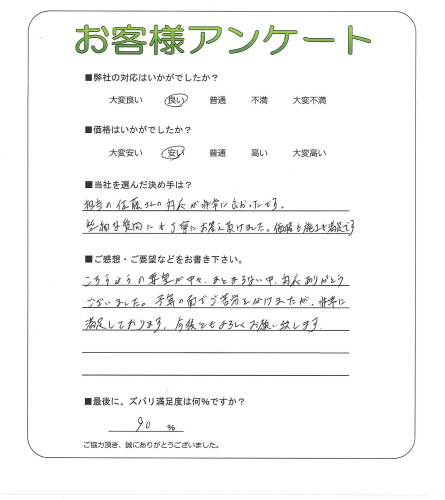 お客様アンケート
■弊社の対応はいかがでしたか？
大変良い 良い 普通 不満 大変不満
■価格はいかがでしたか？
大変安い 安い 普通 高い 大変高い
■当社を選んだ決め手は？
担当の佐藤さんの対応が非常に良かったです。
些細な質問にも丁寧にお答え頂けました。価格も施工も満足です
■ご感想・ご要望などをお書き下さい。
こちらようの希望が中々、まとまらない中、対応ありがとう
ございました。予算の面でご苦労をかけましたが、非常に
満足しております。今後ともよろしくお願い致します。
■最後に、ズバリ満足度は何％ですか？
90 ％
ご協力頂き、誠にありがとうございました。